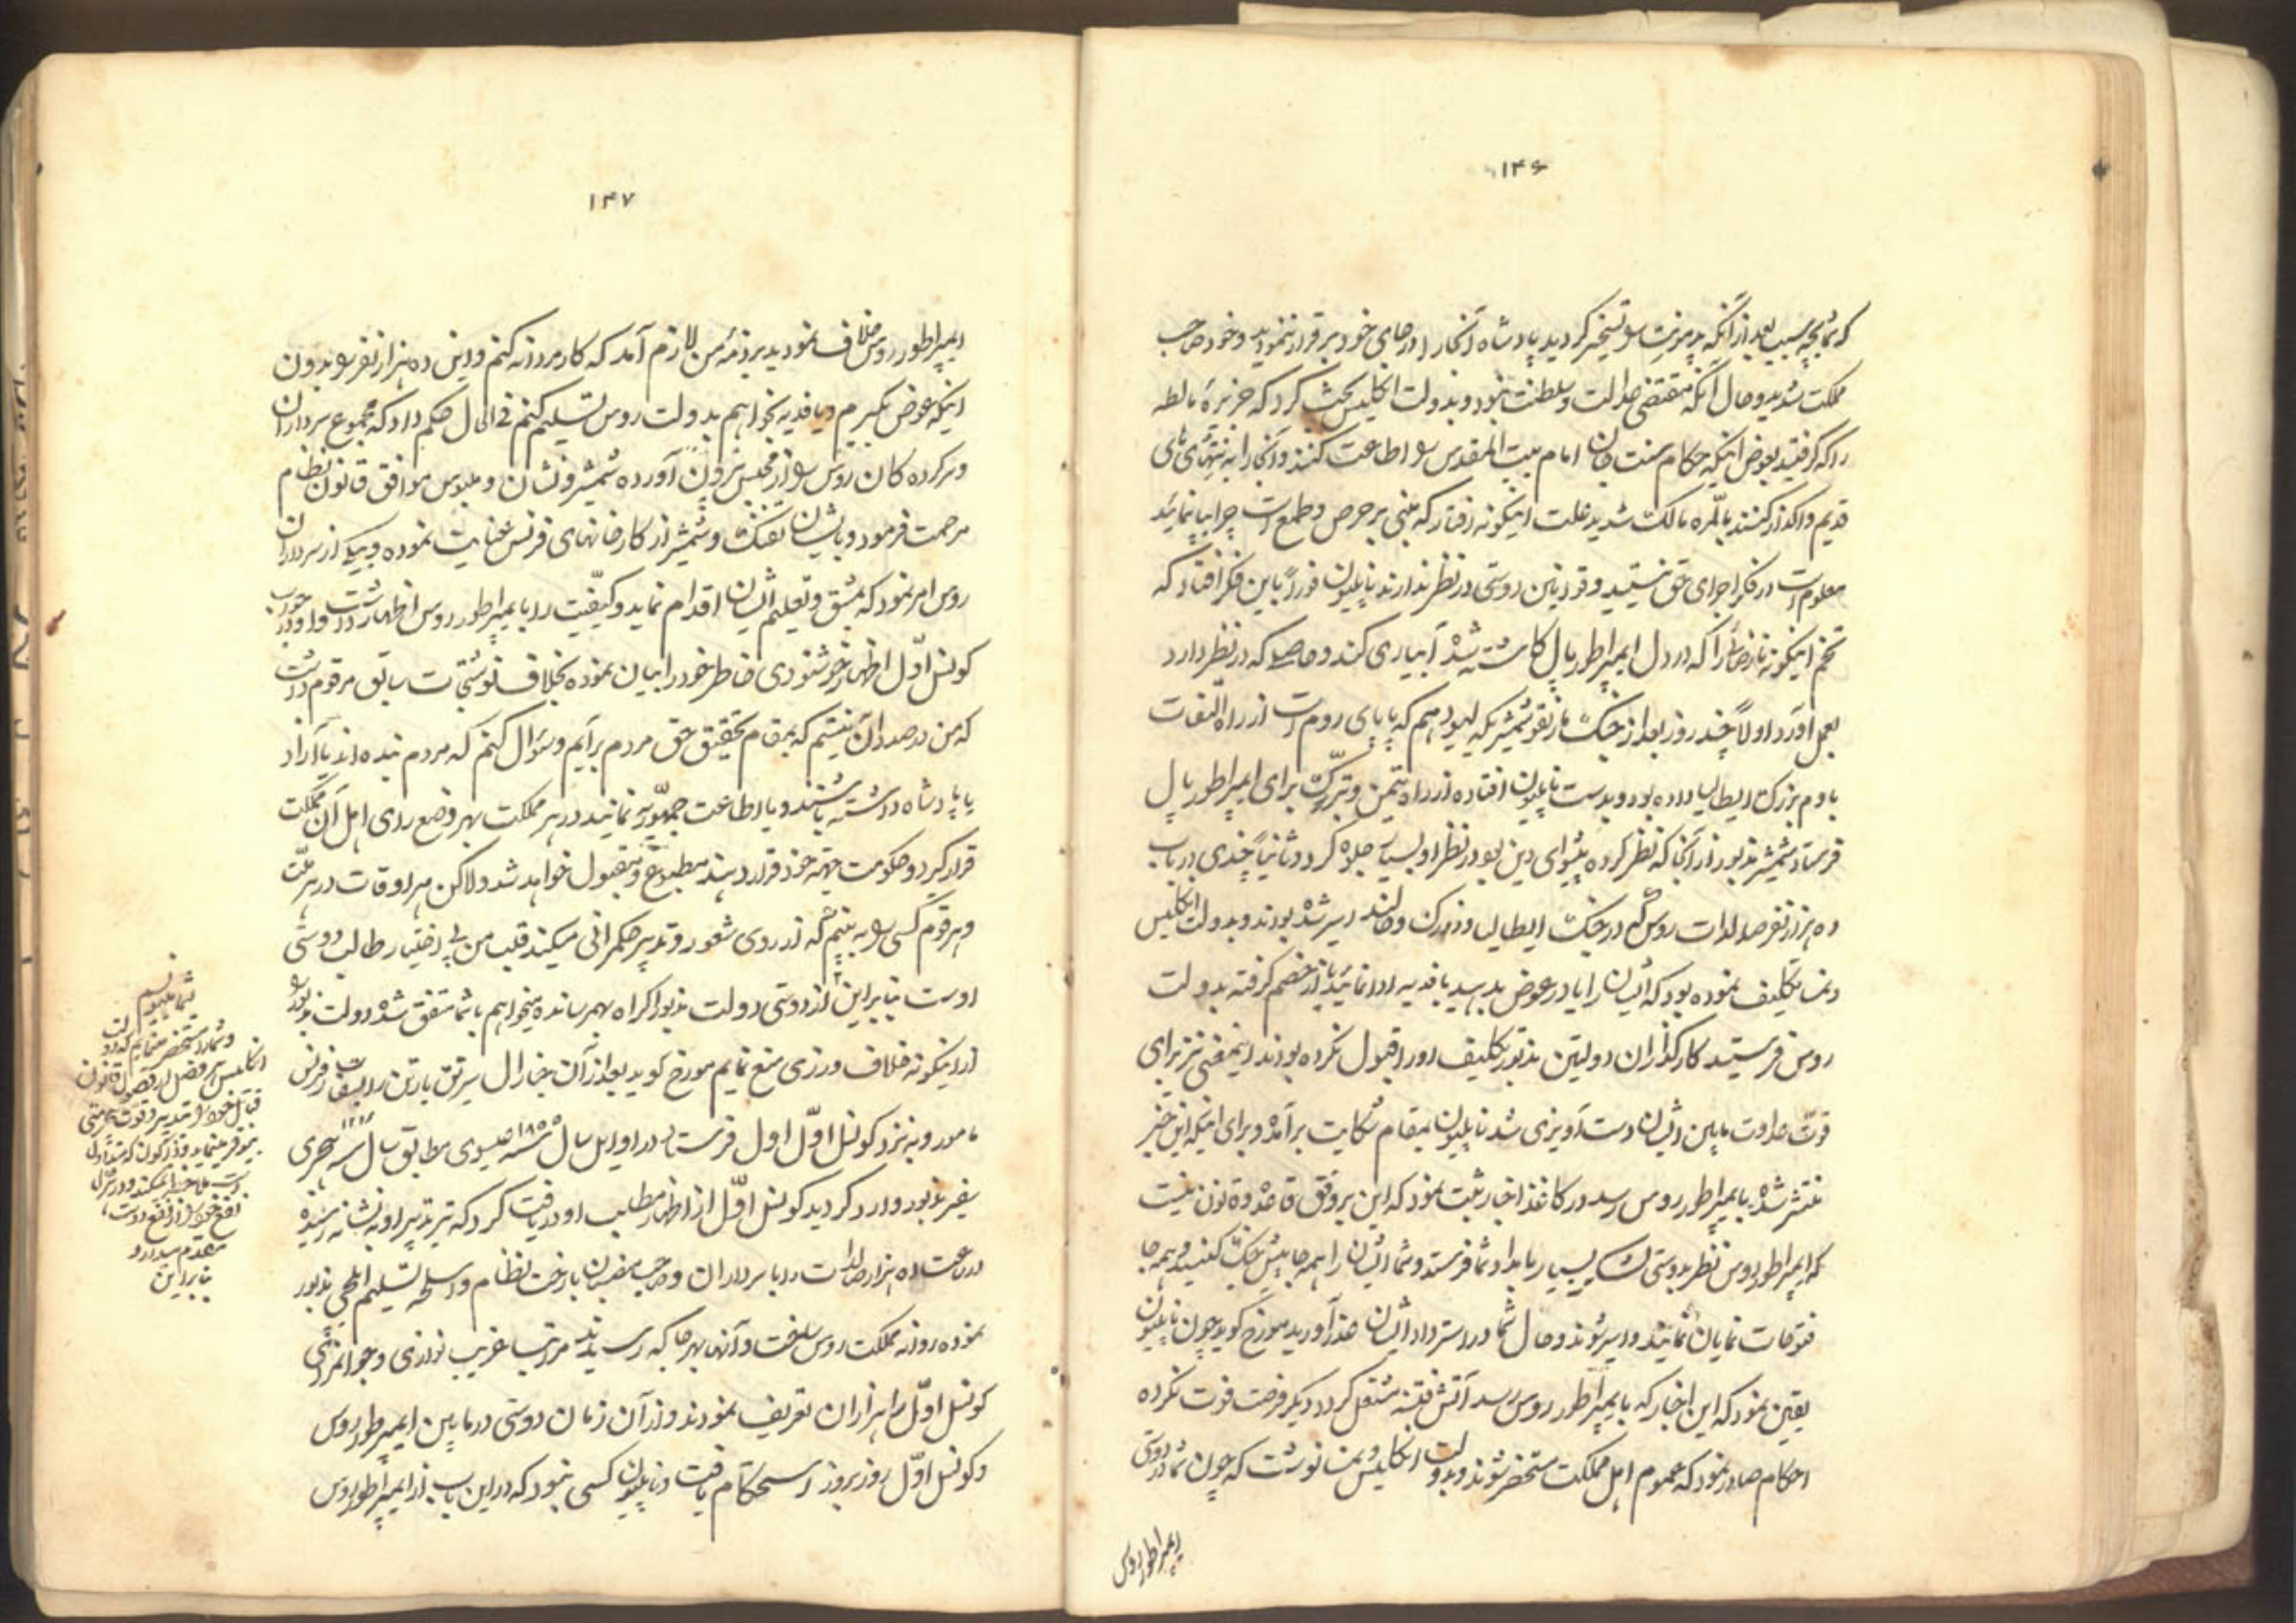 ۱۴۶
که شما بچه سبب بعد از آنکه پدمونت را تسخیر کردید پادشاه آنجا را در جای خود برقرار ننمودید و خود صاحب
مملکت شدید و حال آنکه مقتضی عدالت و سلطنت نبود و بدولت انگلیس بحث کرد که جزیره مالطه
را که گرفتید بعوض اینکه حکام سنت جان امام بیت المقدس را اطاعت کنند و آنجا را به
قدیم واگذار کنند بالمره مالک شدید علت اینگونه رفتار که مبنی بر حرص و طمع است چرا بیان نمائید
معلوم است در فکر اجرای حق نیستید و قوانین دوستی در نظر ندارند ناپلیون فوراً باین فکر افتاد که
تخم اینگونه را که در دل ایمپراطور پال کاشته شده آبیاری کند و مقاصدی که در نظر دارد
بعمل آورد اولاً چند روز بعد از جنگ مارنقو شمشیری که لیو دهم که پاپای روم است از راه التفات
بادم بزرگ ایطالیا داده بود و بدست ناپلیون افتاده از راه تیمن و تبرک برای ایمپراطور پال
فرستاد شمشیر مذبور از آنجا که نظر کرده پیشوای دین بود در نظر او بسیار جلوه کرد و ثانیاً چندی در باب
ده هزار نفر صلدات روس که در جنگ ایطالیا و زورک و هالند اسیر شده بودند و بدولت انگلیس
و نمسا تکلیف نموده بود که ایشان را یا در عوض بدهید یا فدیه ادا نمائید یا از خصم گرفته بدولت
روس فرستید کارگذاران دولتین مذبور تکلیف او را قبول نکرده بودند اینمعنی نیز برای
قوت عداوت مابین ایشان دست آویزی شد ناپلیون بمقام شکایت برآمده و برای اینکه این خبر
منتشر شده بایمپراطور روس رسد در کاغذ اخبار ثبت نمود که این بر وفق قاعده و قانون نیست
که ایمپراطور روس نظر بدوستی لشکر بسیار بامداد شما فرستد و شما ایشان را همه جا پیش جنگ کنید و همه جا
فتوحات نمایان نمایند و اسیر شوند و حال شما در استرداد ایشان عذر آورید مورخ گوید چون ناپلیون
یقین نمود که این اخبار که بایمپراطور روس رسد آتش فتنه مشتعل گردد دیگر فرصت فوت نکرده
احکام صادر نمود که عموم اهل مملکت مستحضر شوند و بدولت انگلیس و نمسا نوشت که چون شما در دوستی
ایمپراطور روس
۱۴۷
ایمپراطور روس خلاف نمودید بر ذمه من لازم آمد که کار مردانه کنم و این ده هزار نفر را بدون
اینکه عوض بگیرم و یا فدیه بخواهم بدولت روس تسلیم کنم فی الحال حکم داد که مجموع سرداران
و سرکرده کان روس را از مجلس بیرون آورده شمشیر و نشان و ملبوس موافق قانون نظام
مرحمت فرمود و بایشان تفنگ و شمشیر از کارخانهای فرنس عنایت نموده و بیکی از سرداران
روس امر نمود که بمشق و تعلیم ایشان اقدام نماید و کیفیت را بایمپراطور روس اظهار داشت و او در جواب
کونسل اول اظهار خوشنودی خاطر خود را بیان نموده بخلاف نوشتجات سابق مرقوم داشت
که من در صدد آن نیستم که بمقام تحقیق حق مردم برآیم و سئوال کنم که مردم بنده اند یا آزاد
یا پادشاه داشته باشند و یا اطاعت جمهوریه نمایند در هر مملکت بهر وضع رای اهل آن مملکت
قرار گیرد و حکومت جهة خود قرار دهند مطبوع و مقبول خواهد شد ولاکن هر اوقات در هر ملت
و هر قوم کسی را به بینم که از روی شعور و تدبیر حکمرانی میکند قلب من بی اختیار طالب دوستی
اوست بنابراین از دوستی دولت مذبور اکراه بهم رسانده میخواهم باشما متفق شده دولت مذبور را
از اینگونه خلاف ورزی منع نمایم مورخ گوید بعد از آن جنرال سپرنق بارتن را بسفارت فرنس
مامور و به نزد کونسل اول فرستاد در اوایل سال ۱۸۰۰ سنه عیسوی مطابق سال ۱۲۱۶ سنه هجری
سفیر مذبور وارد گردید کونسل اول از اظهار مطلب او دریافت کرد که تیر تدبیر او به نشانه رسیده
در ساعت ده هزار صلدات را با سرداران و صاحب منصبان با رخت نظام و اسلحه تسلیم ایلچی مذبور
نموده روانه مملکت روس ساخت و آنها بهر جا که رسیدند مراتب غریب نوازی و جوانمردی
کونسل اول را هزاران تعریف نمودند و از آن زمان دوستی در مابین ایمپراطور روس
و کونسل اول روز بروز استحکام یافت و ناپلیون کسی نبود که در این باب از ایمپراطور روس
و شما را مستحضر مینمایم که دولت
انگلیس
نفع خود را از نفع دوست
مقدم میدارد
بنابراین